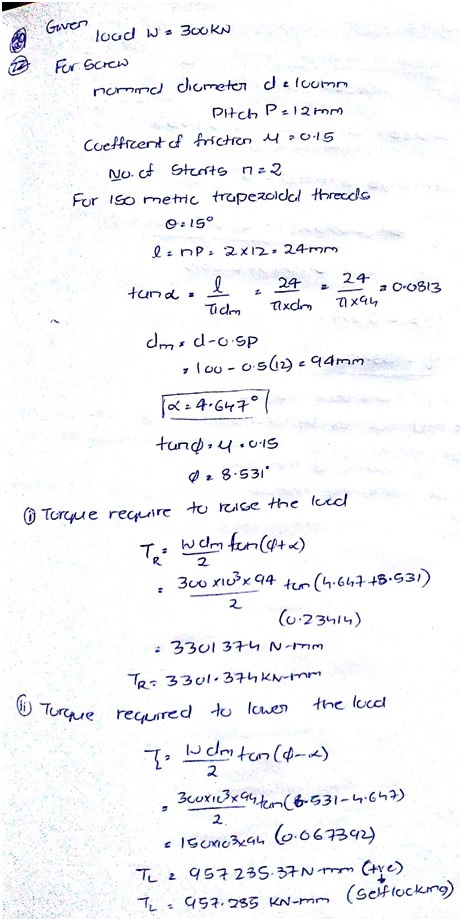 Given load W = 300KN
(22) For Screw
nominal diameter d = 100mm
Pitch P = 12mm
Coefficient of friction μ = 0.15
No. of Starts n = 2
For ISO metric trapezoidal threads
θ = 15°
l = nP = 2×12 = 24mm
tanα = l/πdm = 24/π×dm = 24/π×94 = 0.0813
dm = d-0.5P
= 100-0.5(12) = 94mm
α = 4.647°
tanφ = μ = 0.15
φ = 8.531°
(i) Torque require to raise the load
TR = Wdm/2 tan(φ+α)
= 300×10³×94/2 tan(4.647+8.531)
(0.23414)
= 3301374 N-mm
TR = 3301.374KN-mm
(ii) Torque required to lower the load
TL = Wdm/2 tan(φ-α)
= 300×10³×94/2 tan(8.531-4.647)
= 150×10³×94 (0.067392)
TL = 957235.37N-mm (+ve)
TL = 957.235 KN-mm (Self locking)